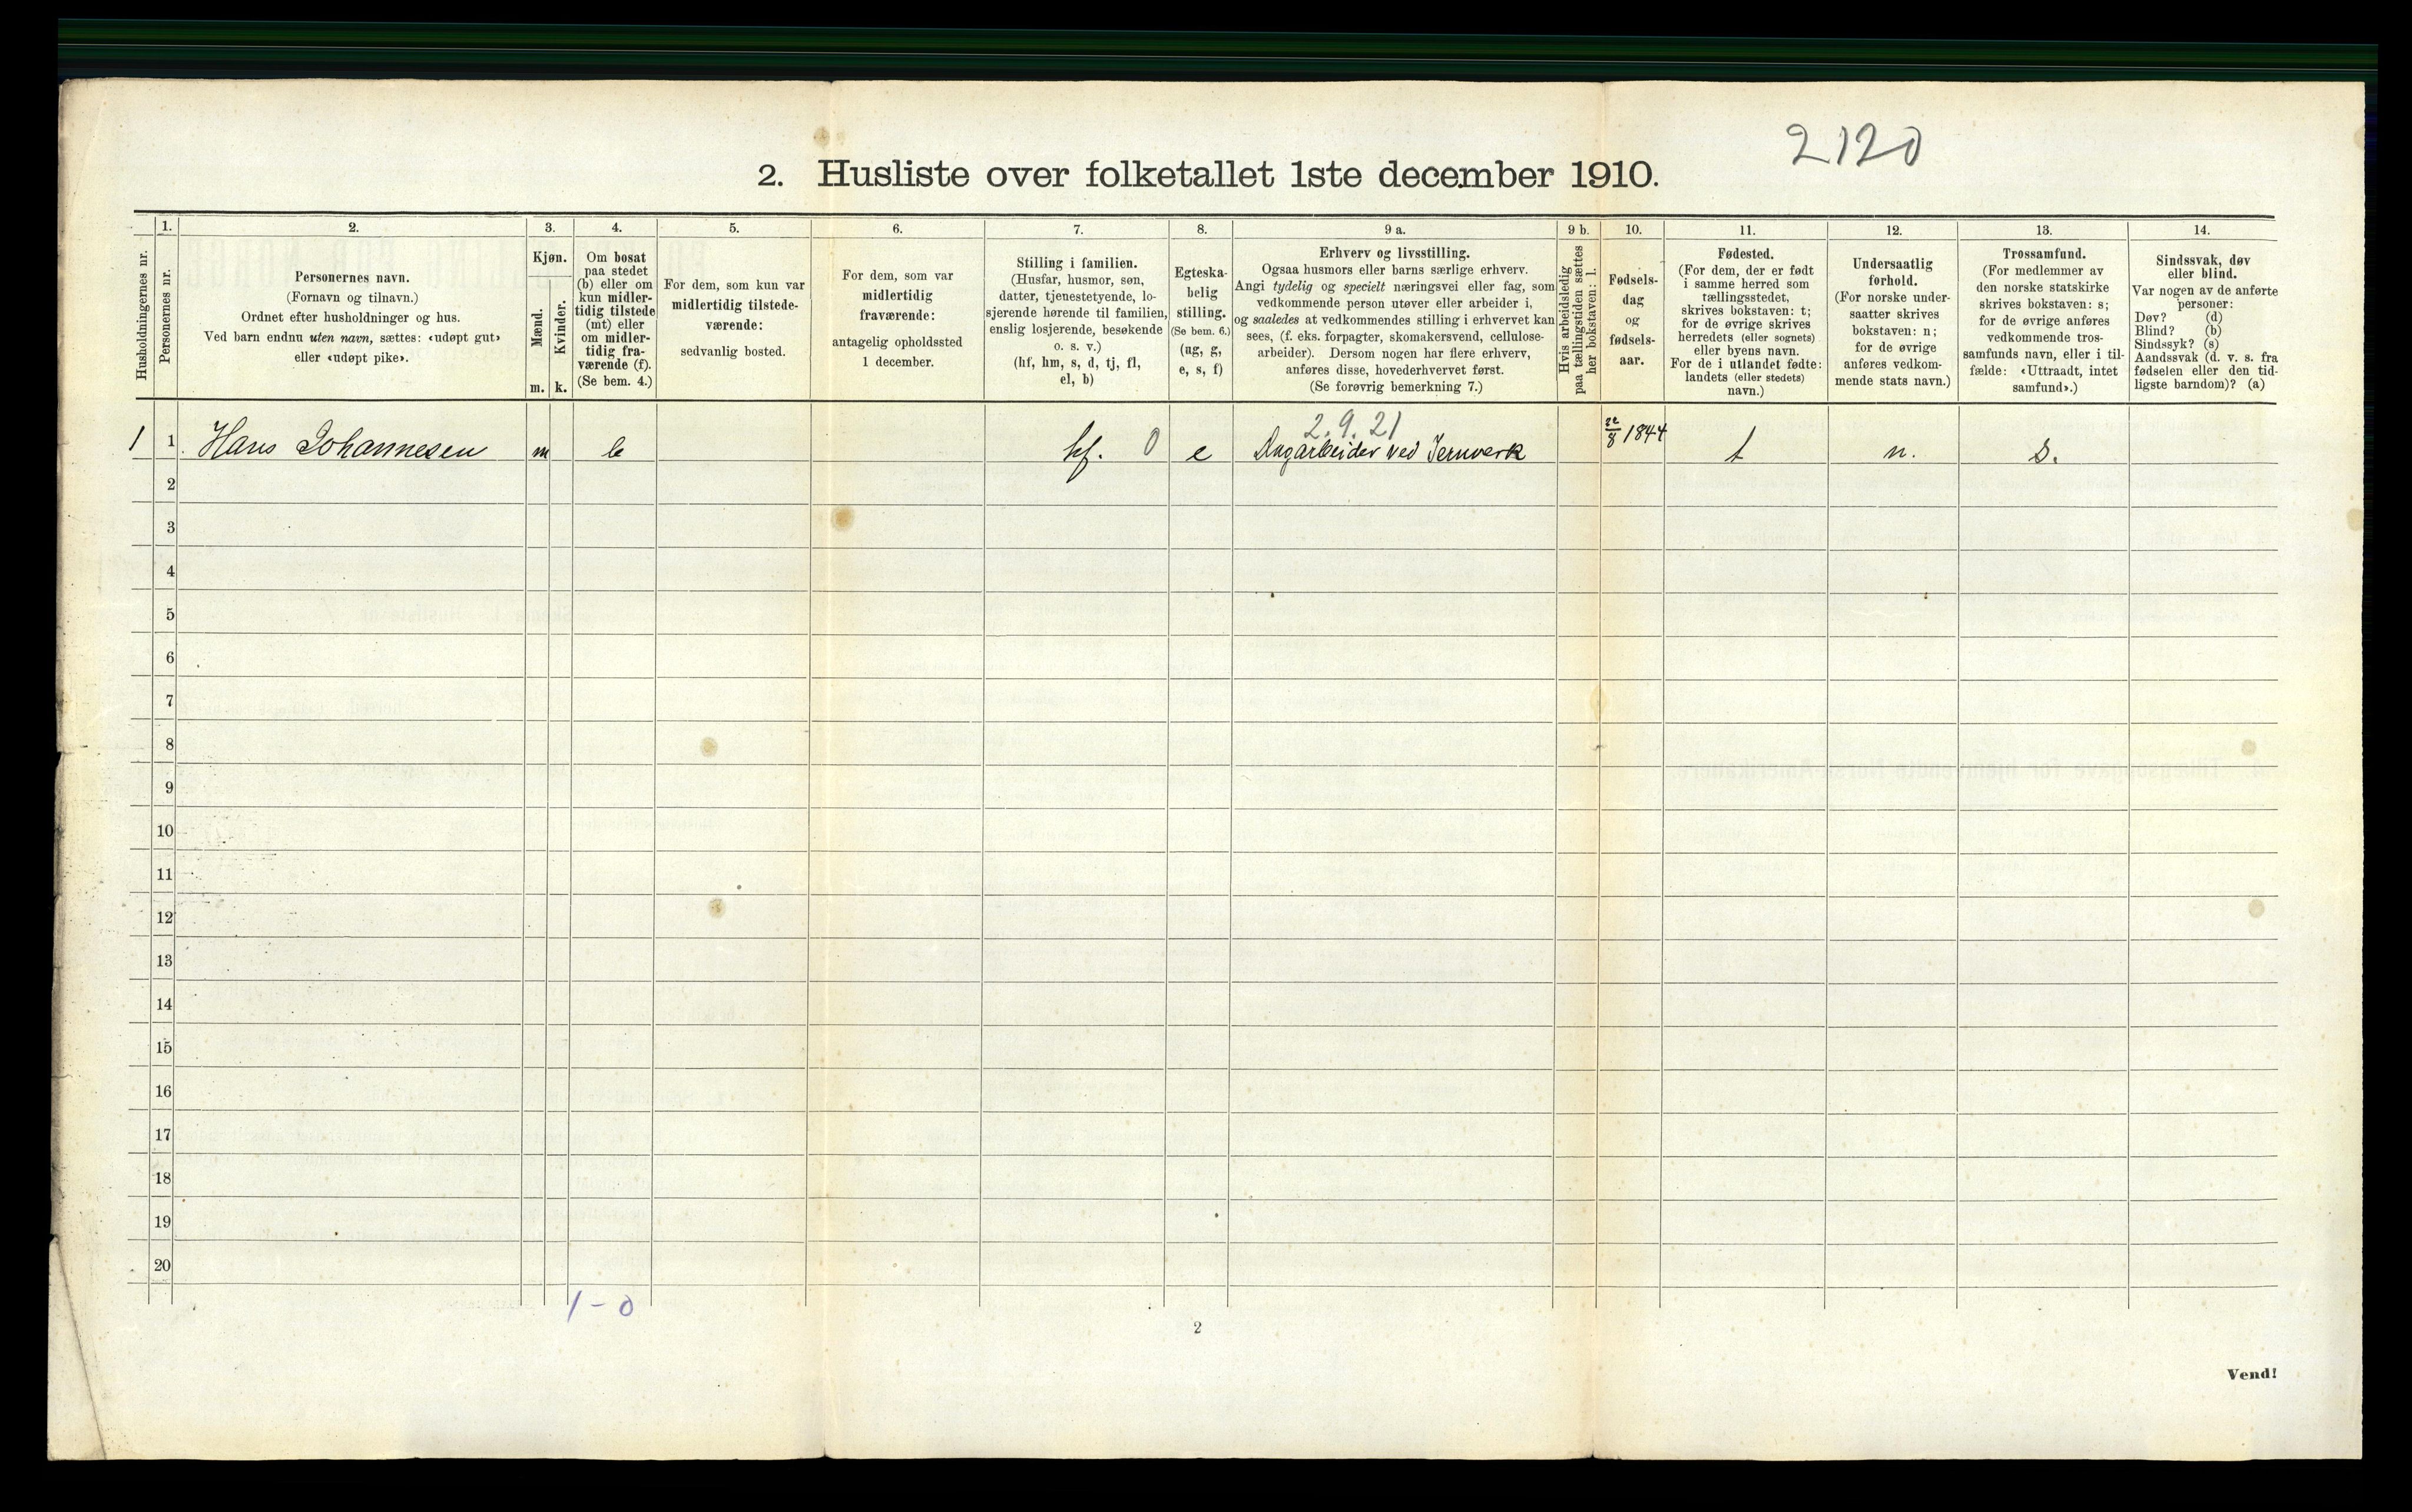 2120
2. Husliste over folketallet 1ste december 1910.
1. 2. 3. 4. 5. 6. 7. 8. 9 a. 9 b. 10. 11. 12. 13. 14.
Husholdningernes nr.
Personernes nr.
Personernes navn.
(Fornavn og tilnavn.)
Ordnet efter husholdninger og hus.
Ved barn endnu uten navn, sættes: «udøpt gut»
eller «udøpt pike».
Kjøn.
Mænd.
Kvinder.
m. k.
Om bosat
paa stedet
(b) eller om
kun midler-
tidig tilstede
(mt) eller
om midler-
tidig fra-
værende (f).
(Se bem. 4.)
For dem, som kun var
midlertidig tilstede-
værende:
sedvanlig bosted.
For dem, som var
midlertidig
fraværende:
antagelig opholdssted
1 december.
Stilling i familien.
(Husfar, husmor, søn,
datter, tjenestetyende, lo-
sjerende hørende til familien,
enslig losjerende, besøkende
o. s. v.)
(hf, hm, s, d, tj, fl,
el, b)
Egteska-
belig
stilling.
(Se bem. 6.)
(ug, g,
e, s, f)
Erhverv og livsstilling.
Ogsaa husmors eller barns særlige erhverv.
Angi tydelig og specielt næringsvei eller fag, som
vedkommende person utøver eller arbeider i,
og saaledes at vedkommendes stilling i erhvervet kan
sees, (f. eks. forpagter, skomakersvend, cellulose-
arbeider). Dersom nogen har flere erhverv,
anføres disse, hovederhvervet først.
(Se forøvrig bemerkning 7.)
Hvis arbeidsledig
paa tællingstiden sættes
her bokstaven: l.
Fødsels-
dag
og
fødsels-
aar.
Fødested.
(For dem, der er født
i samme herred som
tællingsstedet,
skrives bokstaven: t;
for de øvrige skrives
herredets (eller sognets)
eller byens navn.
For de i utlandet fødte:
landets (eller stedets)
navn.)
Undersaatlig
forhold.
(For norske under-
saatter skrives
bokstaven: n;
for de øvrige
anføres vedkom-
mende stats navn.)
Trossamfund.
(For medlemmer av
den norske statskirke
skrives bokstaven: s;
for de øvrige anføres
vedkommende tros-
samfunds navn, eller i til-
fælde: «Uttraadt, intet
samfund».)
Sindssvak, døv
eller blind.
Var nogen av de anførte
personer:
Døv? (d)
Blind? (b)
Sindssyk? (s)
Aandssvak (d. v. s. fra
fødselen eller den tid-
ligste barndom)? (a)
2.9.21
1 1 Hans Johannesen m b hf. 0 e Dagarbeider ved Jernverk 8 1844 t n. s.
2
3
4
5
6
7
8
9
10
11
12
13
14
15
16
17
18
19
20
1-0
2
Vend!